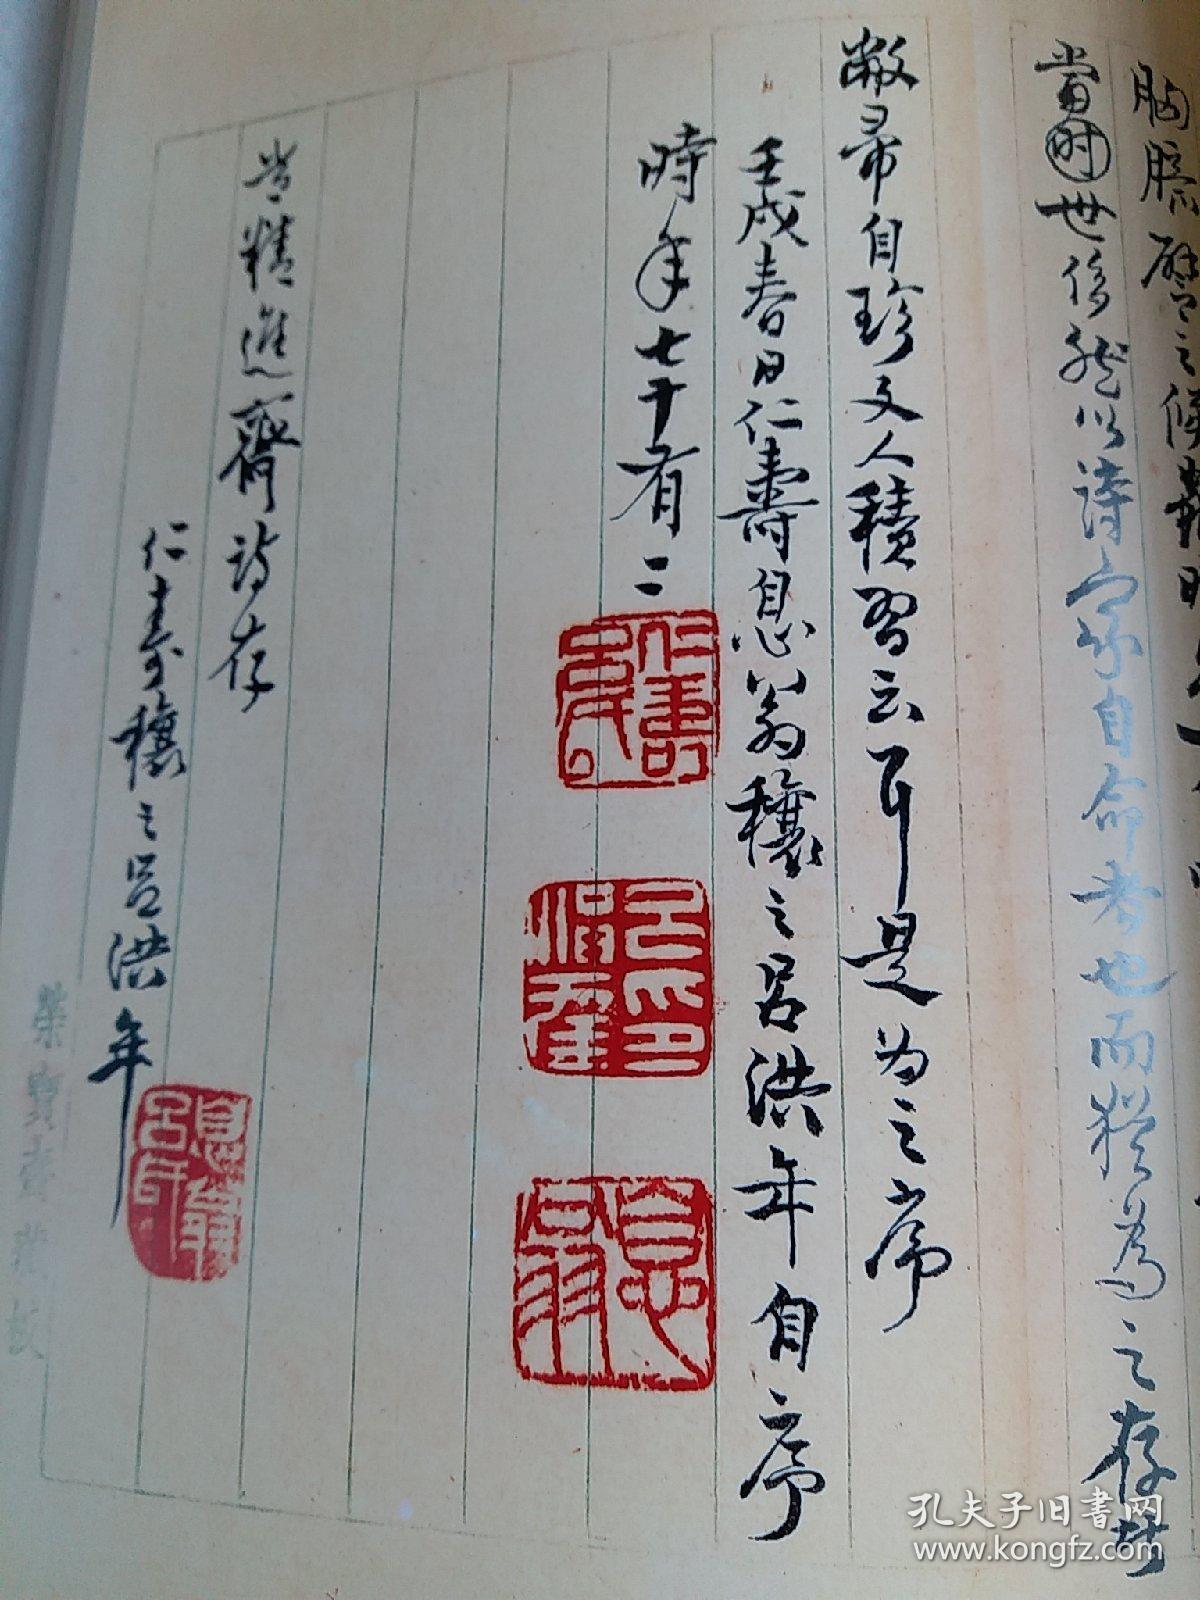 胸臆
當時世俗然以詩家自命者也而猶為之存
敝帚自珍文人積習云耳是为之序
壬戌春日仁壽息翁穰之呂洪年自序
時年七十有二
仁壽呂氏
息翁
常精進齋诗存
仁壽穰之呂洪年
孔夫子旧书网
www.kongfz.com